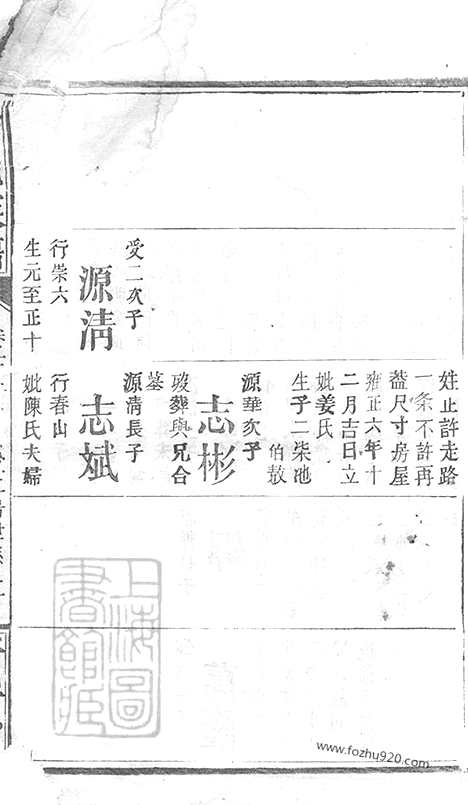 姓止許走路
一条不許再
葢尺寸房屋
雍正六年十
二月吉日立
妣姜氏
生子二柒池
伯敖
源華次子
志彬
歿葬與兄合
墓
源清長子
志斌
行春山
妣陳氏夫婦
受二次子
源清
行崇六
生元至正十
上海圖
書館藏
www.fozhu920.com